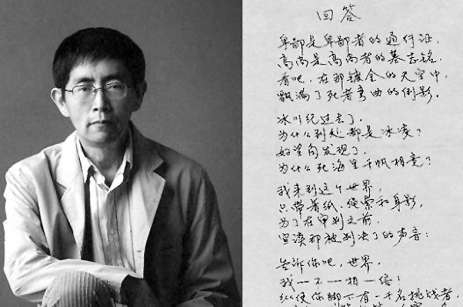 回答
卑鄙是卑鄙者的通行证,
高尚是高尚者的墓志铭。
看吧,在那镀金的天空中,
飘满了死者弯曲的倒影。
冰川纪过去了,
为什么到处都是冰凌?
好望角发现了,
为什么死海里千帆相竞?
我来到这个世界,
只带着纸、绳索和身影,
为了在审判之前,
宣读那被判决了的声音:
告诉你吧,世界,
我—不—相—信!
纵使你脚下有一千名挑战者,